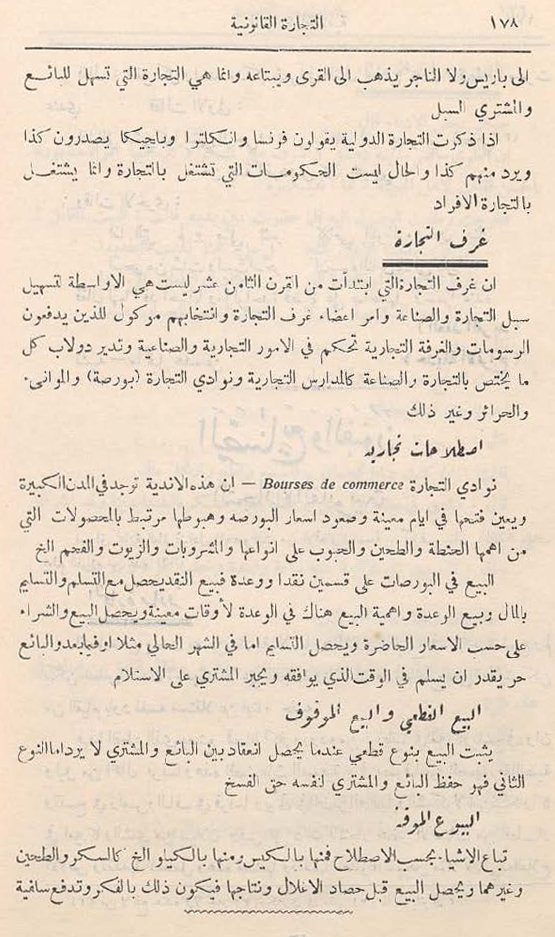 ١٧٨
التجارة القانونية
الى باريس ولا التاجر يذهب الى القرى ويبتاعه وانما هي التجارة التي تسهل للبائع
والمشتري السبل
اذا ذكرت التجارة الدولية يقولون فرنسا وانكلترا وبلجيكا يصدرون كذا
ويرد منهم كذا والحال ليست الحكومات التي تشتغل بالتجارة وانما يشتغل
بالتجارة الافراد
غرف التجارة
ان غرف التجارة التي ابتدأت من القرن الثامن عشر ليست هي الا واسطة لتسهيل
سبل التجارة والصناعة وامر اعضاء غرف التجارة وانتخابهم موكول للذين يدفعون
الرسومات والغرفة التجارية تحكم في الامور التجارية والصناعية وتدير دولاب كل
ما يختص بالتجارة والصناعة كالمدارس التجارية ونوادي التجارة (بورصة) والموانىء
والحرائر وغير ذلك
اصطلاحات تجارية
نوادي التجارة Bourses de commerce — ان هذه الاندية توجد في المدن الكبيرة
ويعين فتحها في ايام معينة وصعود اسعار البورصه وهبوطها مرتبط بالمحصولات التي
من اهمها الحنطة والطحين والحبوب على انواعها والمشروبات والزيوت والفحم الخ
البيع في البورصات على قسمين نقدا ووعدة فبيع النقد يحصل مع التسلم والتسليم
بالمال وبيع الوعدة واهمية البيع هناك في الوعدة لأوقات معينة ويحصل البيع والشراء
على حسب الاسعار الحاضرة ويحصل التسليم اما في الشهر الحالي مثلا او فيما بعد والبائع
حر يقدر ان يسلم في الوقت الذي يوافقه ويجبر المشتري على الاستلام
البيع القطعي والبيع الموقوف
يثبت البيع بنوع قطعي عندما يحصل انعقاد بين البائع والمشتري لا يرد اما النوع
الثاني فهو حفظ البائع والمشتري لنفسه حق الفسخ
البيوع الموقتة
تباع الاشياء بحسب الاصطلاح فمنها بالكيس ومنها بالكيلو الخ كالسكر والطحين
وغيرهما ويحصل البيع قبل حصاد الاغلال ونتاجها فيكون ذلك بالفكر وتدفع سافية